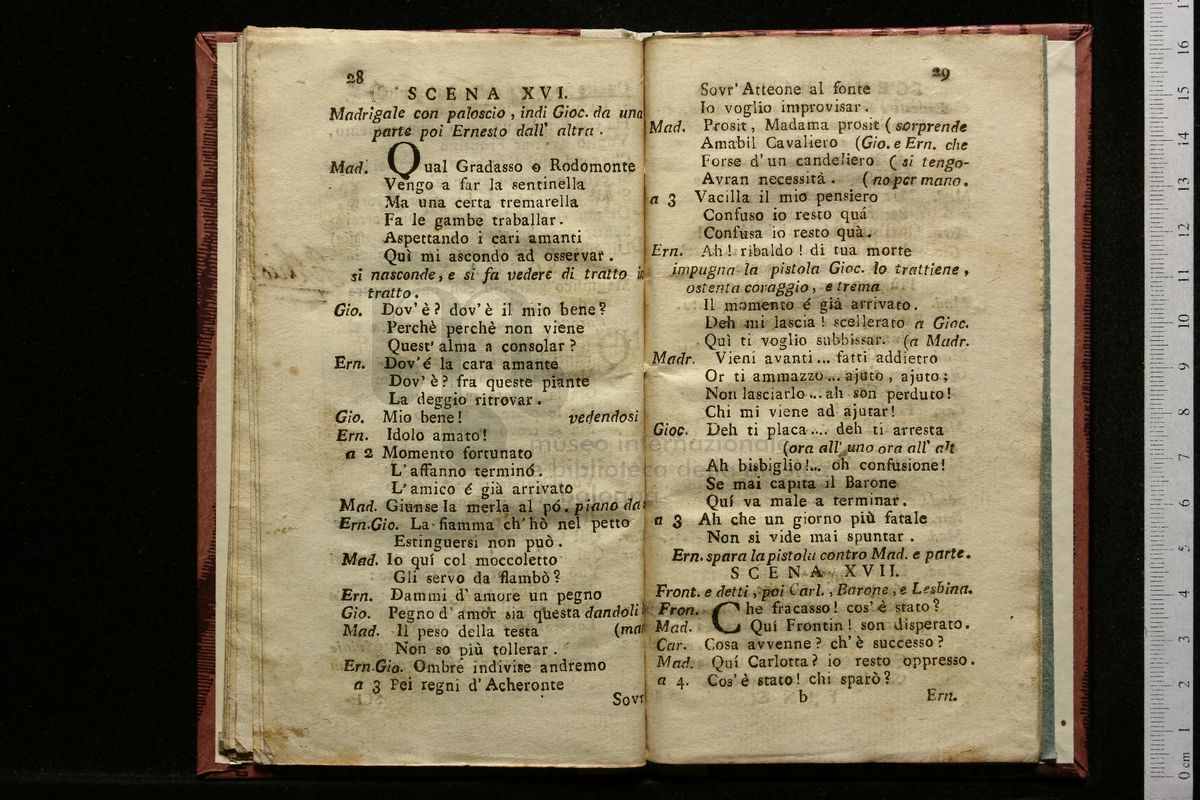 28
SCENA XVI.
Madrigale con paloscio, indi Gioc. da una
parte poi Ernesto dall' altra.
Mad. Qual Gradasso o Rodomonte
Vengo a far la sentinella
Ma una certa tremarella
Fa le gambe traballar.
Aspettando i cari amanti
Quì mi ascondo ad osservar.
si nasconde, e si fa vedere di tratto in
tratto.
Gio. Dov'è? dov'è il mio bene?
Perchè perchè non viene
Quest' alma a consolar?
Ern. Dov'é la cara amante
Dov'è? fra queste piante
La deggio ritrovar.
Gio. Mio bene! vedendosi
Ern. Idolo amato!
a 2 Momento fortunato
L'affanno terminó.
L'amico é già arrivato
Mad. Giunse la merla al pó. piano da
Ern.Gio. La fiamma ch'hò nel petto
Estinguersi non può.
Mad. Io quí col moccoletto
Gli servo da flambò?
Ern. Dammi d'amore un pegno
Gio. Pegno d'amor sia questa dandoli
Mad. Il peso della testa (ma
Non so più tollerar.
Ern.Gio. Ombre indivise andremo
a 3 Pei regni d'Acheronte
Sovr
29
Sovr'Atteone al fonte
Io voglio improvisar.
Mad. Prosit, Madama prosit (sorprende
Amabil Cavaliero (Gio. e Ern. che
Forse d'un candeliero (si tengo-
Avran necessità. (no per mano.
a 3 Vacilla il mio pensiero
Confuso io resto quá
Confusa io resto quà.
Ern. Ah! ribaldo! di tua morte
impugna la pistola Gioc. lo trattiene,
ostenta coraggio, e trema
Il momento é già arrivato.
Deh mi lascia! scellerato a Gioc.
Quì ti voglio subbissar. (a Madr.
Madr. Vieni avanti... fatti addietro
Or ti ammazzo... ajuto, ajuto;
Non lasciarlo... ah son perduto!
Chi mi viene ad ajutar!
Gioc. Deh ti placa.... deh ti arresta
(ora all' uno ora all' alt
Ah bisbiglio!... oh confusione!
Se mai capita il Barone
Quí va male a terminar.
a 3 Ah che un giorno più fatale
Non si vide mai spuntar.
Ern. spara la pistola contro Mad. e parte.
SCENA XVII.
Front. e detti, poi Carl., Barone, e Lesbina.
Fron. Che fracasso! cos'è stato?
Mad. Quí Frontin! son disperato.
Car. Cosa avvenne? ch'è successo?
Mad. Quí Carlotta? io resto oppresso.
a 4. Cos'è stato! chi sparò?
b Ern.
museo internazionale
e biblioteca della